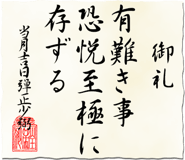 御礼
有難き事
恐悦至極に
存ずる
当月吉日弾正少弼